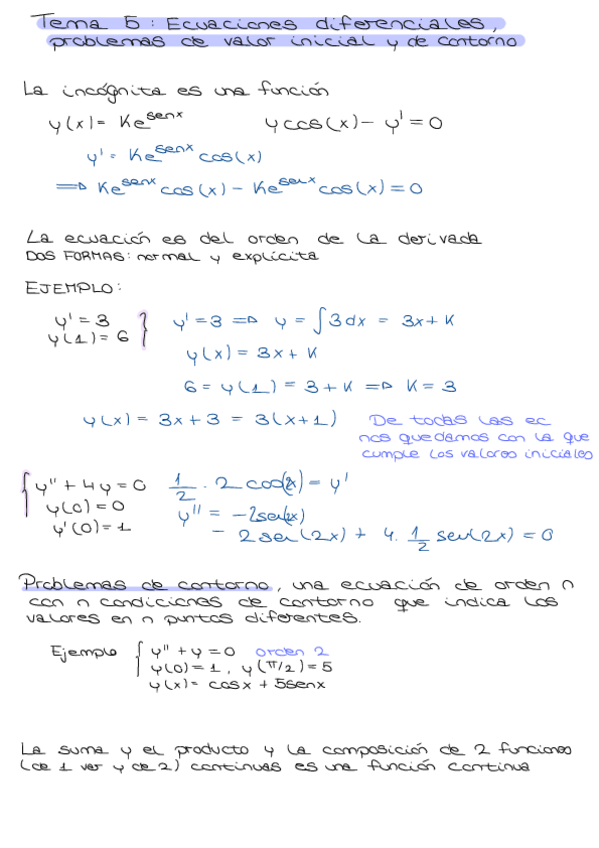 Tema 5: Ecuaciones diferenciales,
problemas de valor inicial y de contorno
La incógnita es una función
y(x)= Ke^senx ycos(x) - y' = 0
y' = Ke^senx cos(x)
⟹ Ke^senx cos(x) - Ke^senx cos(x) = 0
La ecuación es del orden de la derivada
DOS FORMAS: normal y explícita
EJEMPLO:
y' = 3
y(1) = 6
y' = 3 ⟹ y = ∫3dx = 3x + K
y(x) = 3x + K
6 = y(1) = 3 + K ⟹ K = 3
y(x) = 3x + 3 = 3(x+1)
De todas las ec
nos quedamos con la que
cumple los valores iniciales
y'' + 4y = 0
y(0) = 0
y'(0) = 1
1/2 · 2 cos(2x) = y'
y'' = -2sen(2x)
- 2sen(2x) + 4 · 1/2 sen(2x) = 0
Problemas de contorno, una ecuación de orden n
con n condiciones de contorno que indica los
valores en n puntos diferentes.
Ejemplo y'' + y = 0 orden 2
y(0) = 1, y(π/2) = 5
y(x) = cosx + 5senx
La suma y el producto y la composición de 2 funciones
(de 1 var y de 2) continuas es una función continua